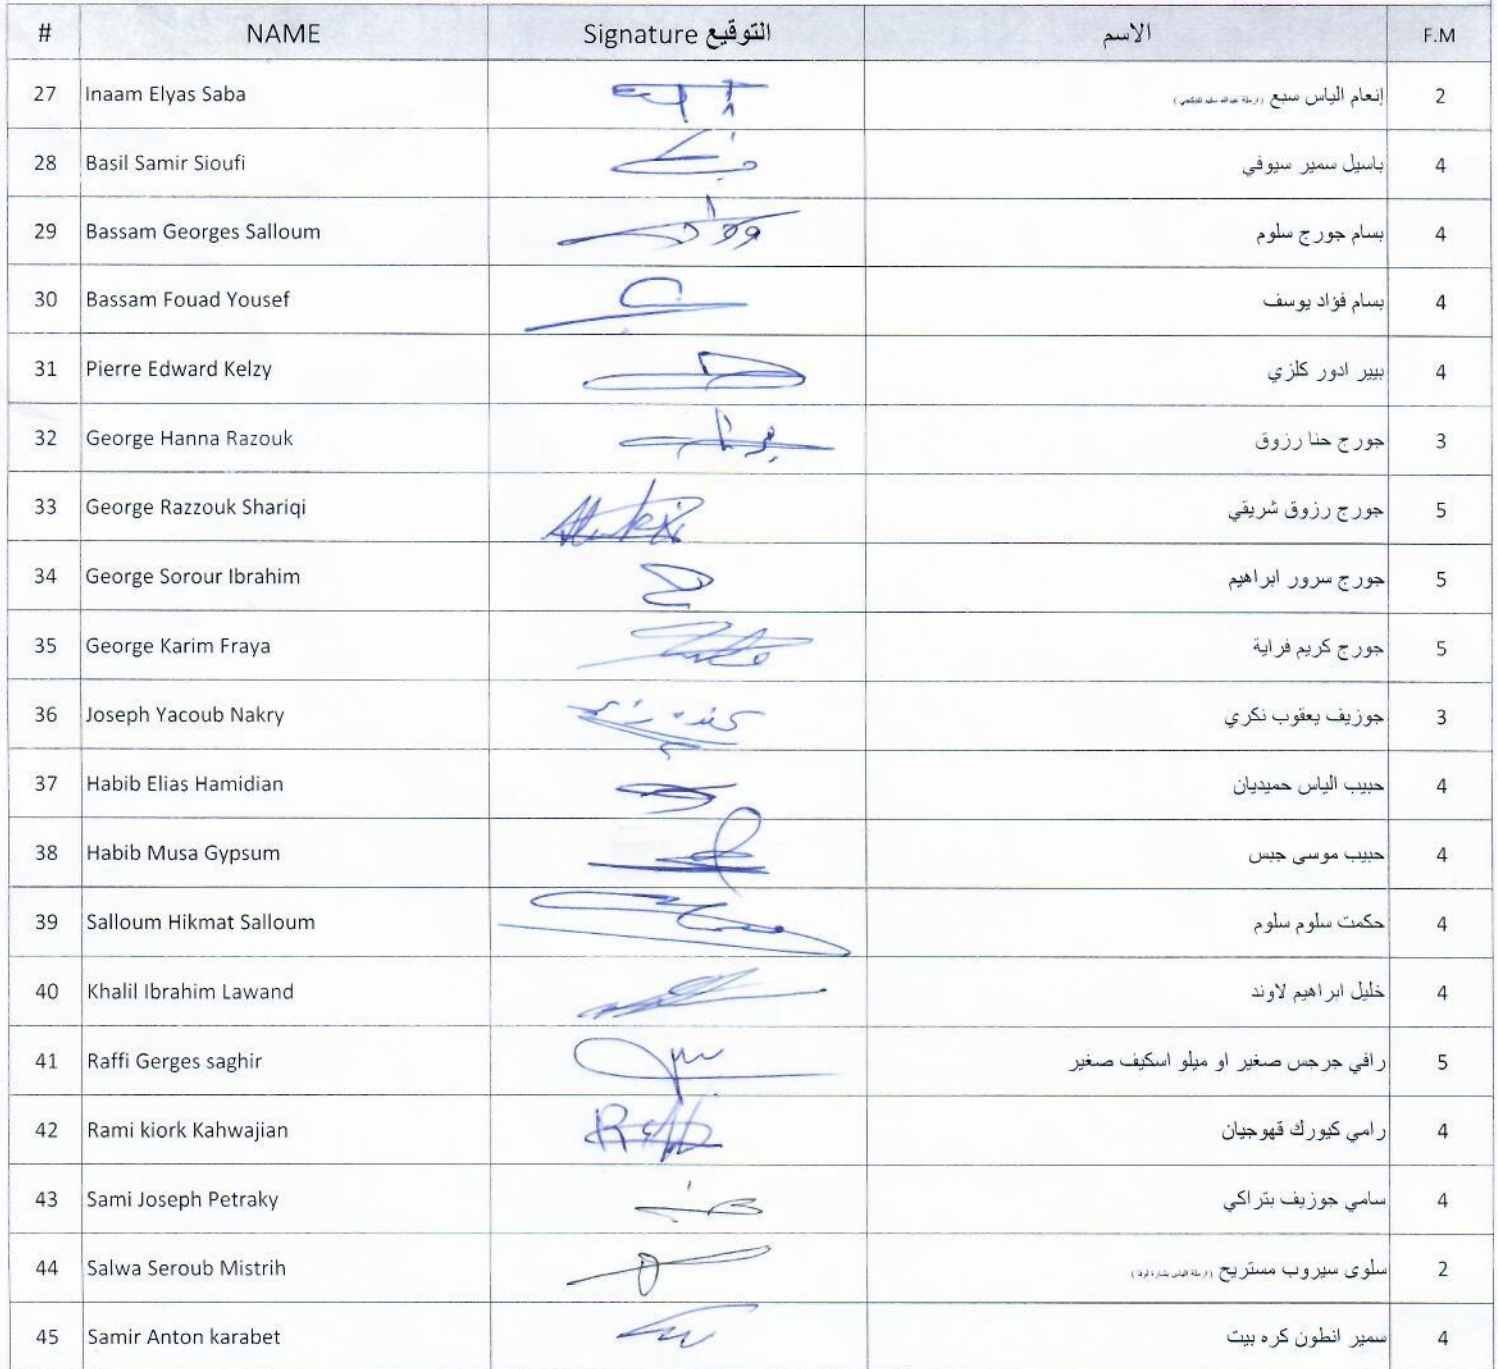 # NAME Signature التوقيع الاسم F.M
27 Inaam Elyas Saba إنعام الياس سبع 2
28 Basil Samir Sioufi باسيل سمير سيوفي 4
29 Bassam Georges Salloum بسام جورج سلوم 4
30 Bassam Fouad Yousef بسام فؤاد يوسف 4
31 Pierre Edward Kelzy بيير ادور كلزي 4
32 George Hanna Razouk جورج حنا رزوق 3
33 George Razzouk Shariqi جورج رزوق شريقي 5
34 George Sorour Ibrahim جورج سرور ابراهيم 5
35 George Karim Fraya جورج كريم فراية 5
36 Joseph Yacoub Nakry جوزيف يعقوب نكري 3
37 Habib Elias Hamidian حبيب الياس حميديان 4
38 Habib Musa Gypsum حبيب موسى جبس 4
39 Salloum Hikmat Salloum حكمت سلوم سلوم 4
40 Khalil Ibrahim Lawand خليل ابراهيم لاوند 4
41 Raffi Gerges saghir رافي جرجس صغير او ميلو اسكيف صغير 5
42 Rami kiork Kahwajian رامي كيورك قهوجيان 4
43 Sami Joseph Petraky سامي جوزيف بتراكي 4
44 Salwa Seroub Mistrih سلوى سيروب مستريح 2
45 Samir Anton karabet سمير انطون كره بيت 4